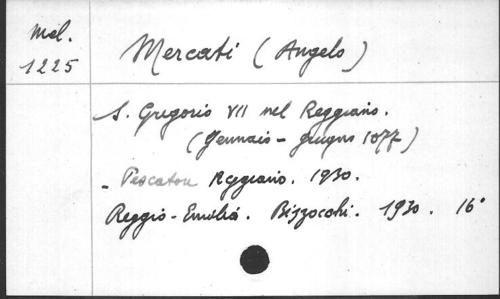 Mel.
1225
Mercati (Angelo)
S. Gregorio VII nel Reggiano.
(Gennaio - giugno 1077)
- Pescatore Reggiano. 1930.
Reggio-Emilia. Bizzocchi. 1930. 16°